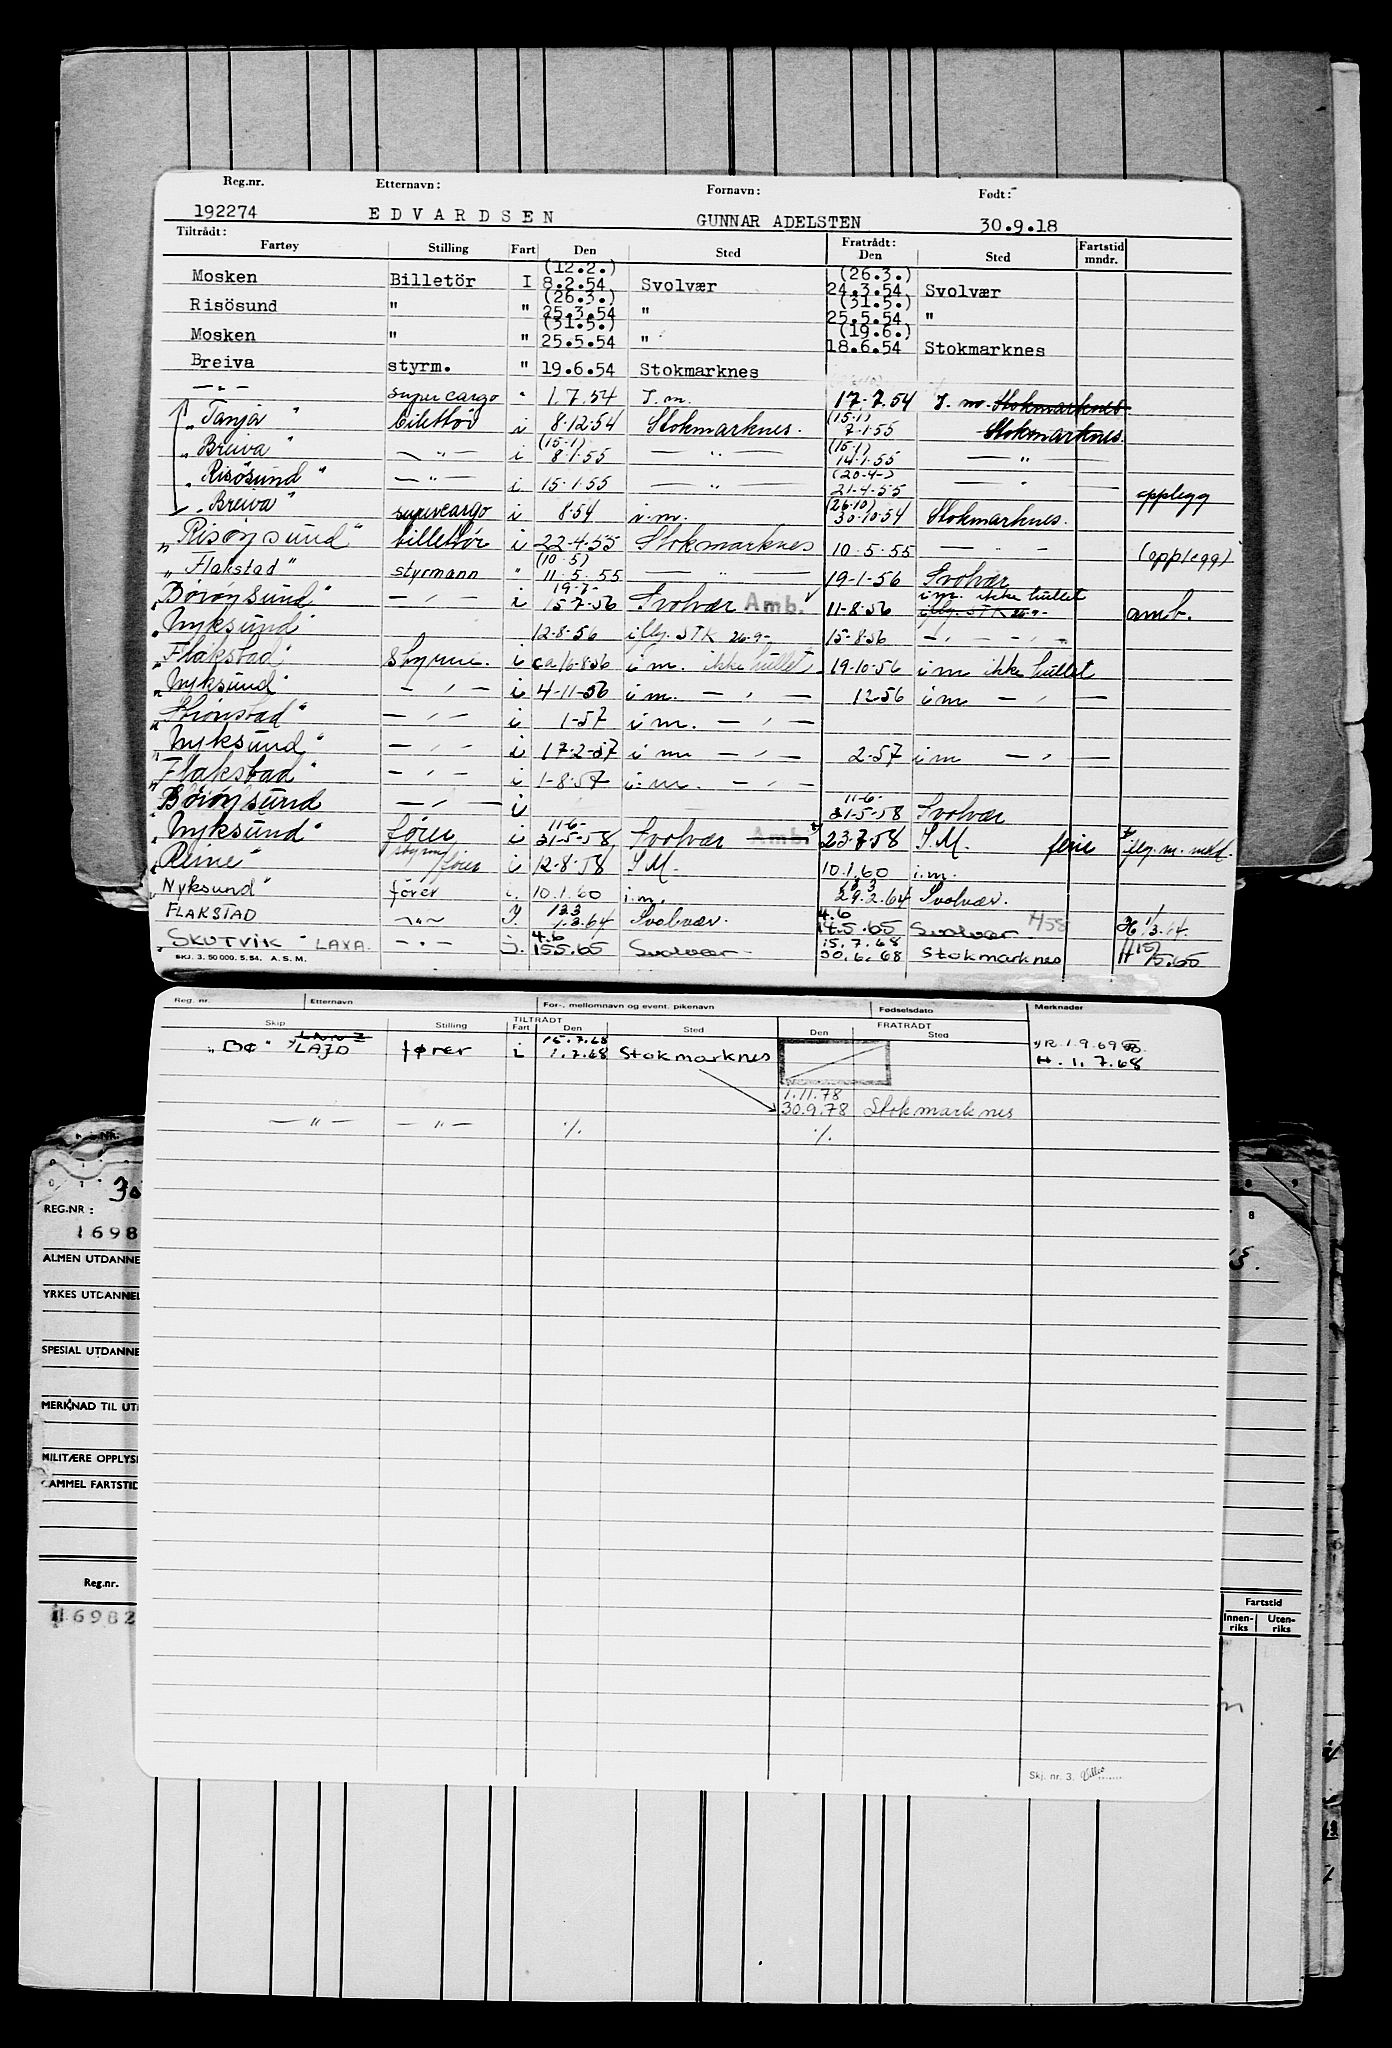 Reg.nr. Etternavn: Fornavn: Født:
192274 EDVARDSEN GUNNAR ADELSTEN 30.9.18
Tiltrådt: Fratrådt:
Fartøy Stilling Fart Den Sted Den Sted Fartstid mndr.
(12.2.) (26.3.)
Mosken Billetör I 8.2.54 Svolvær 24.3.54 Svolvær
(26.3.) (31.5.)
Risösund " " 25.3.54 " 25.5.54 "
(31.5.) (19.6.)
Mosken " " 25.5.54 " 18.6.54 Stokmarknes
Breiva styrm. " 19.6.54 Stokmarknes
— " — supercargo " 1.7.54 I.m. 17.7.54 I.m. Stokmarknes
(15.1)
"Tanja" billettör i 8.12.54 Stokmarknes. 7.1.55 Stokmarknes.
(15.1) (15.1)
"Breiva" — " — i 8.1.55 — " — 14.1.55 — " —
(20.4.)
"Risösund" — " — i 15.1.55 — " — 21.4.55 — " — opplegg
(26.10)
"Breiva" supercargo i 8.54 i.m. 30.10.54 Stokmarknes.
"Risöysund" billettör i 22.4.55 Stokmarknes 10.5.55 — " — (opplegg)
(10.5)
"Flakstad" styrmann " 11.5.55 — " — 19-1-56 Svolvær
19.7- i.m. ikke hullet
"Böröysund" — " — i 15.7.56 Svolvær Amb. 11-8-56 iflg. STK 26.9- amb.
"Nyksund" 12-8-56 iflg. STK 26.9- 15-8-56 — " — " —
"Flakstad" styrm. i ca 16-8-56 i m. ikke hullet 19-10-56 i m ikke hullet
"Nyksund" — " — i 4-11-56 i m. — " — 12-56 i m — " —
— " — i 1-57 i m. — " —
"Nyksund" — " — i 17-2-57 i m — " — 2-57 i m — " —
"Flakstad" — " — i 1-8-57 i.m. — " —
11-6-
"Böröysund — " — i 31-5-58 Svolvær
11-6-
"Nyksund" förer i 31-5-58 Svolvær Amb. 23-7-58 I.M. ferie iflg. m. mld.
"Reine" styrm/förer i 12-8-58 I.M. 10.1.60 i.m.
"Nyksund" fører i. 10.1.60 i.m. 29.2.64 Svolvær.
FLAKSTAD — " — I. 1.3.64 Svolvær. 4.6 14.5.65 Svolvær H 1/3.64.
"SKUTVIK" LAXA. — " — I. 4.6 15.5.65 Svolvær 15.7.68 30.6.68 Stokmarknes H 15/5.65
SKJ. 3. 50 000. 5.54. A.S.M.
Reg. nr. Etternavn For-, mellomnavn og event. pikenavn Fødselsdato Merknader
TILTRÅDT FRATRÅDT
Skip Stilling Fart Den Sted Den Sted
15.7.68 R. 1.9.69
"BØ" LAJD fører i 1.7.68 Stokmarknes H. 1.7.68
1.11.78
30.9.78 Stokmarknes
— " — — " — ./. ./.
Skj. nr. 3.
REG.NR :
1698
ALMEN UTDANNE
YRKES UTDANNEL
SPESIAL UTDANNE
MERKNAD TIL UT
MILITÆRE OPPLYS
GAMMEL FARTSTID
Reg.nr.
16982
Fartstid
Innen-riks Uten-riks